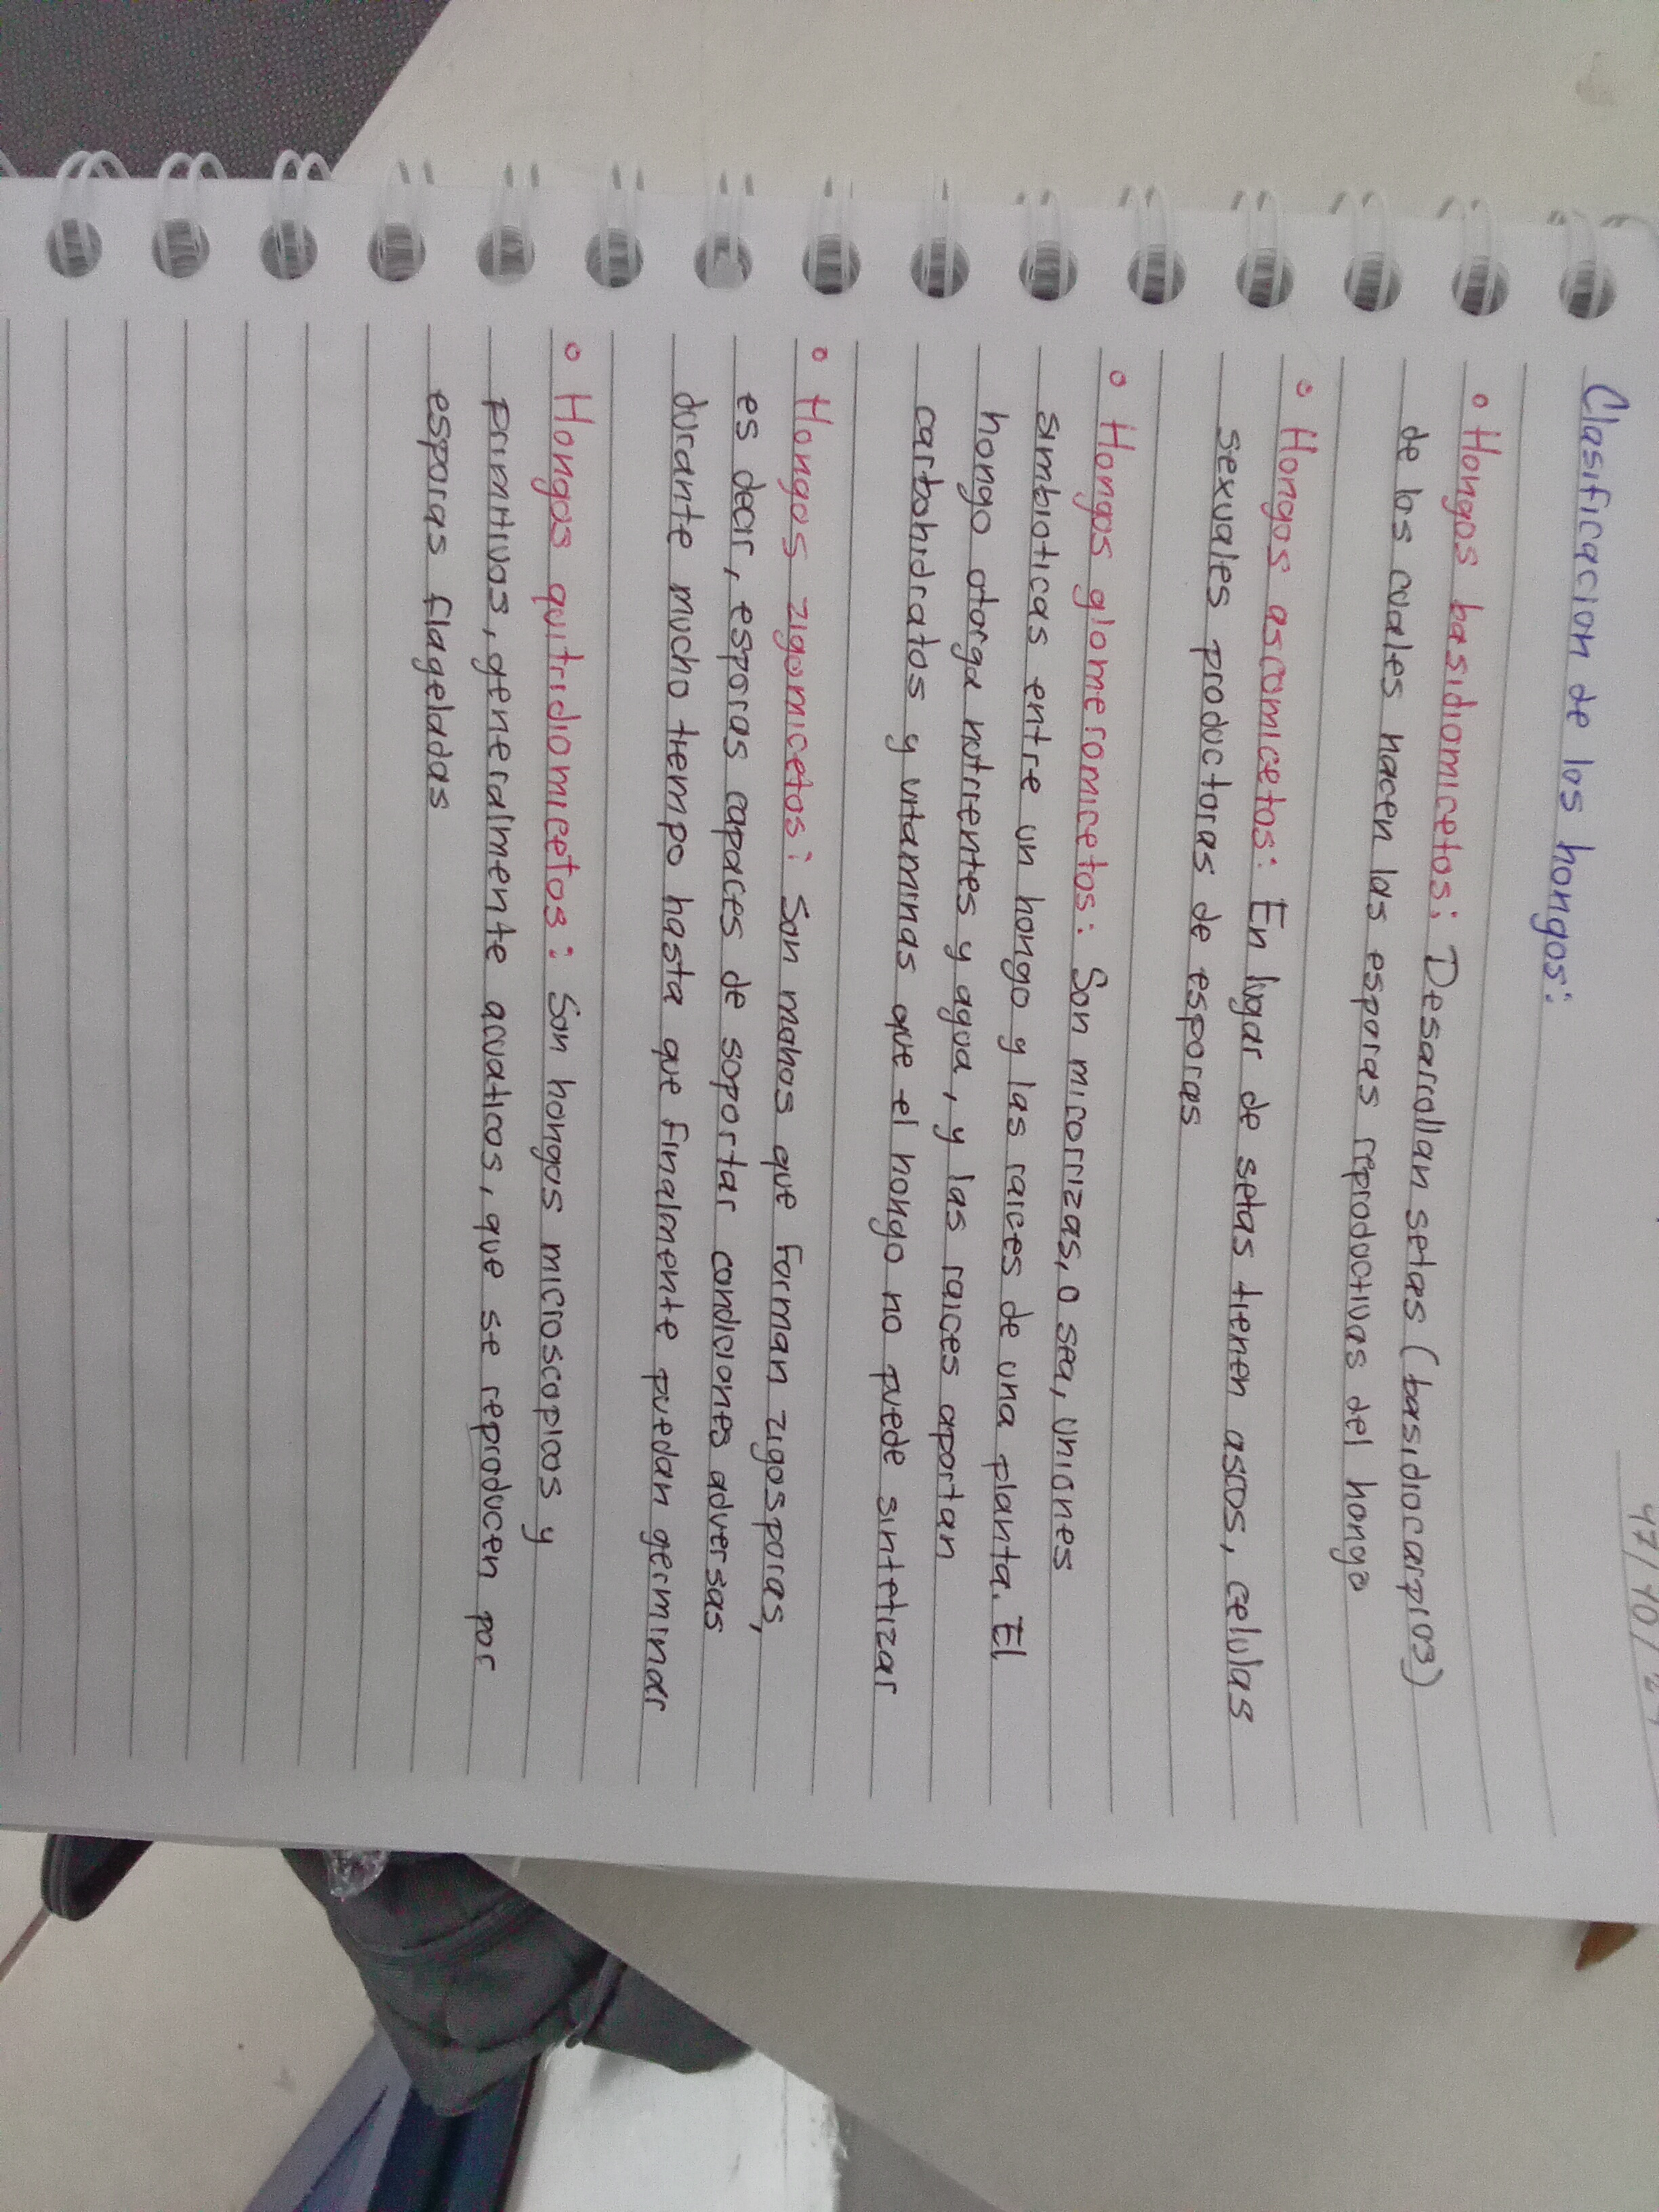 Clasificacion de los hongos:
° Hongos basidiomicetos: Desarollan setas (basidiocarpios)
de los cuales nacen las esporas reproductivas del hongo
° Hongos ascomicetos: En lugar de setas tienen ascos, celulas
sexuales productoras de esporas
° Hongos glomeromicetos: Son micorrizas, o sea, uniones
simbioticas entre un hongo y las raices de una planta. El
hongo otorga nutrientes y agua, y las raices aportan
carbohidratos y vitaminas que el hongo no puede sintetizar
° Hongos zigomicetos: Son mohos que forman zigosporas,
es decir, esporas capaces de soportar condiciones adversas
durante mucho tiempo hasta que finalmente puedan germinar
° Hongos quitridiomicetos: Son hongos microscopicos y
primitivos, generalmente acuaticos, que se reproducen por
esporas flageladas